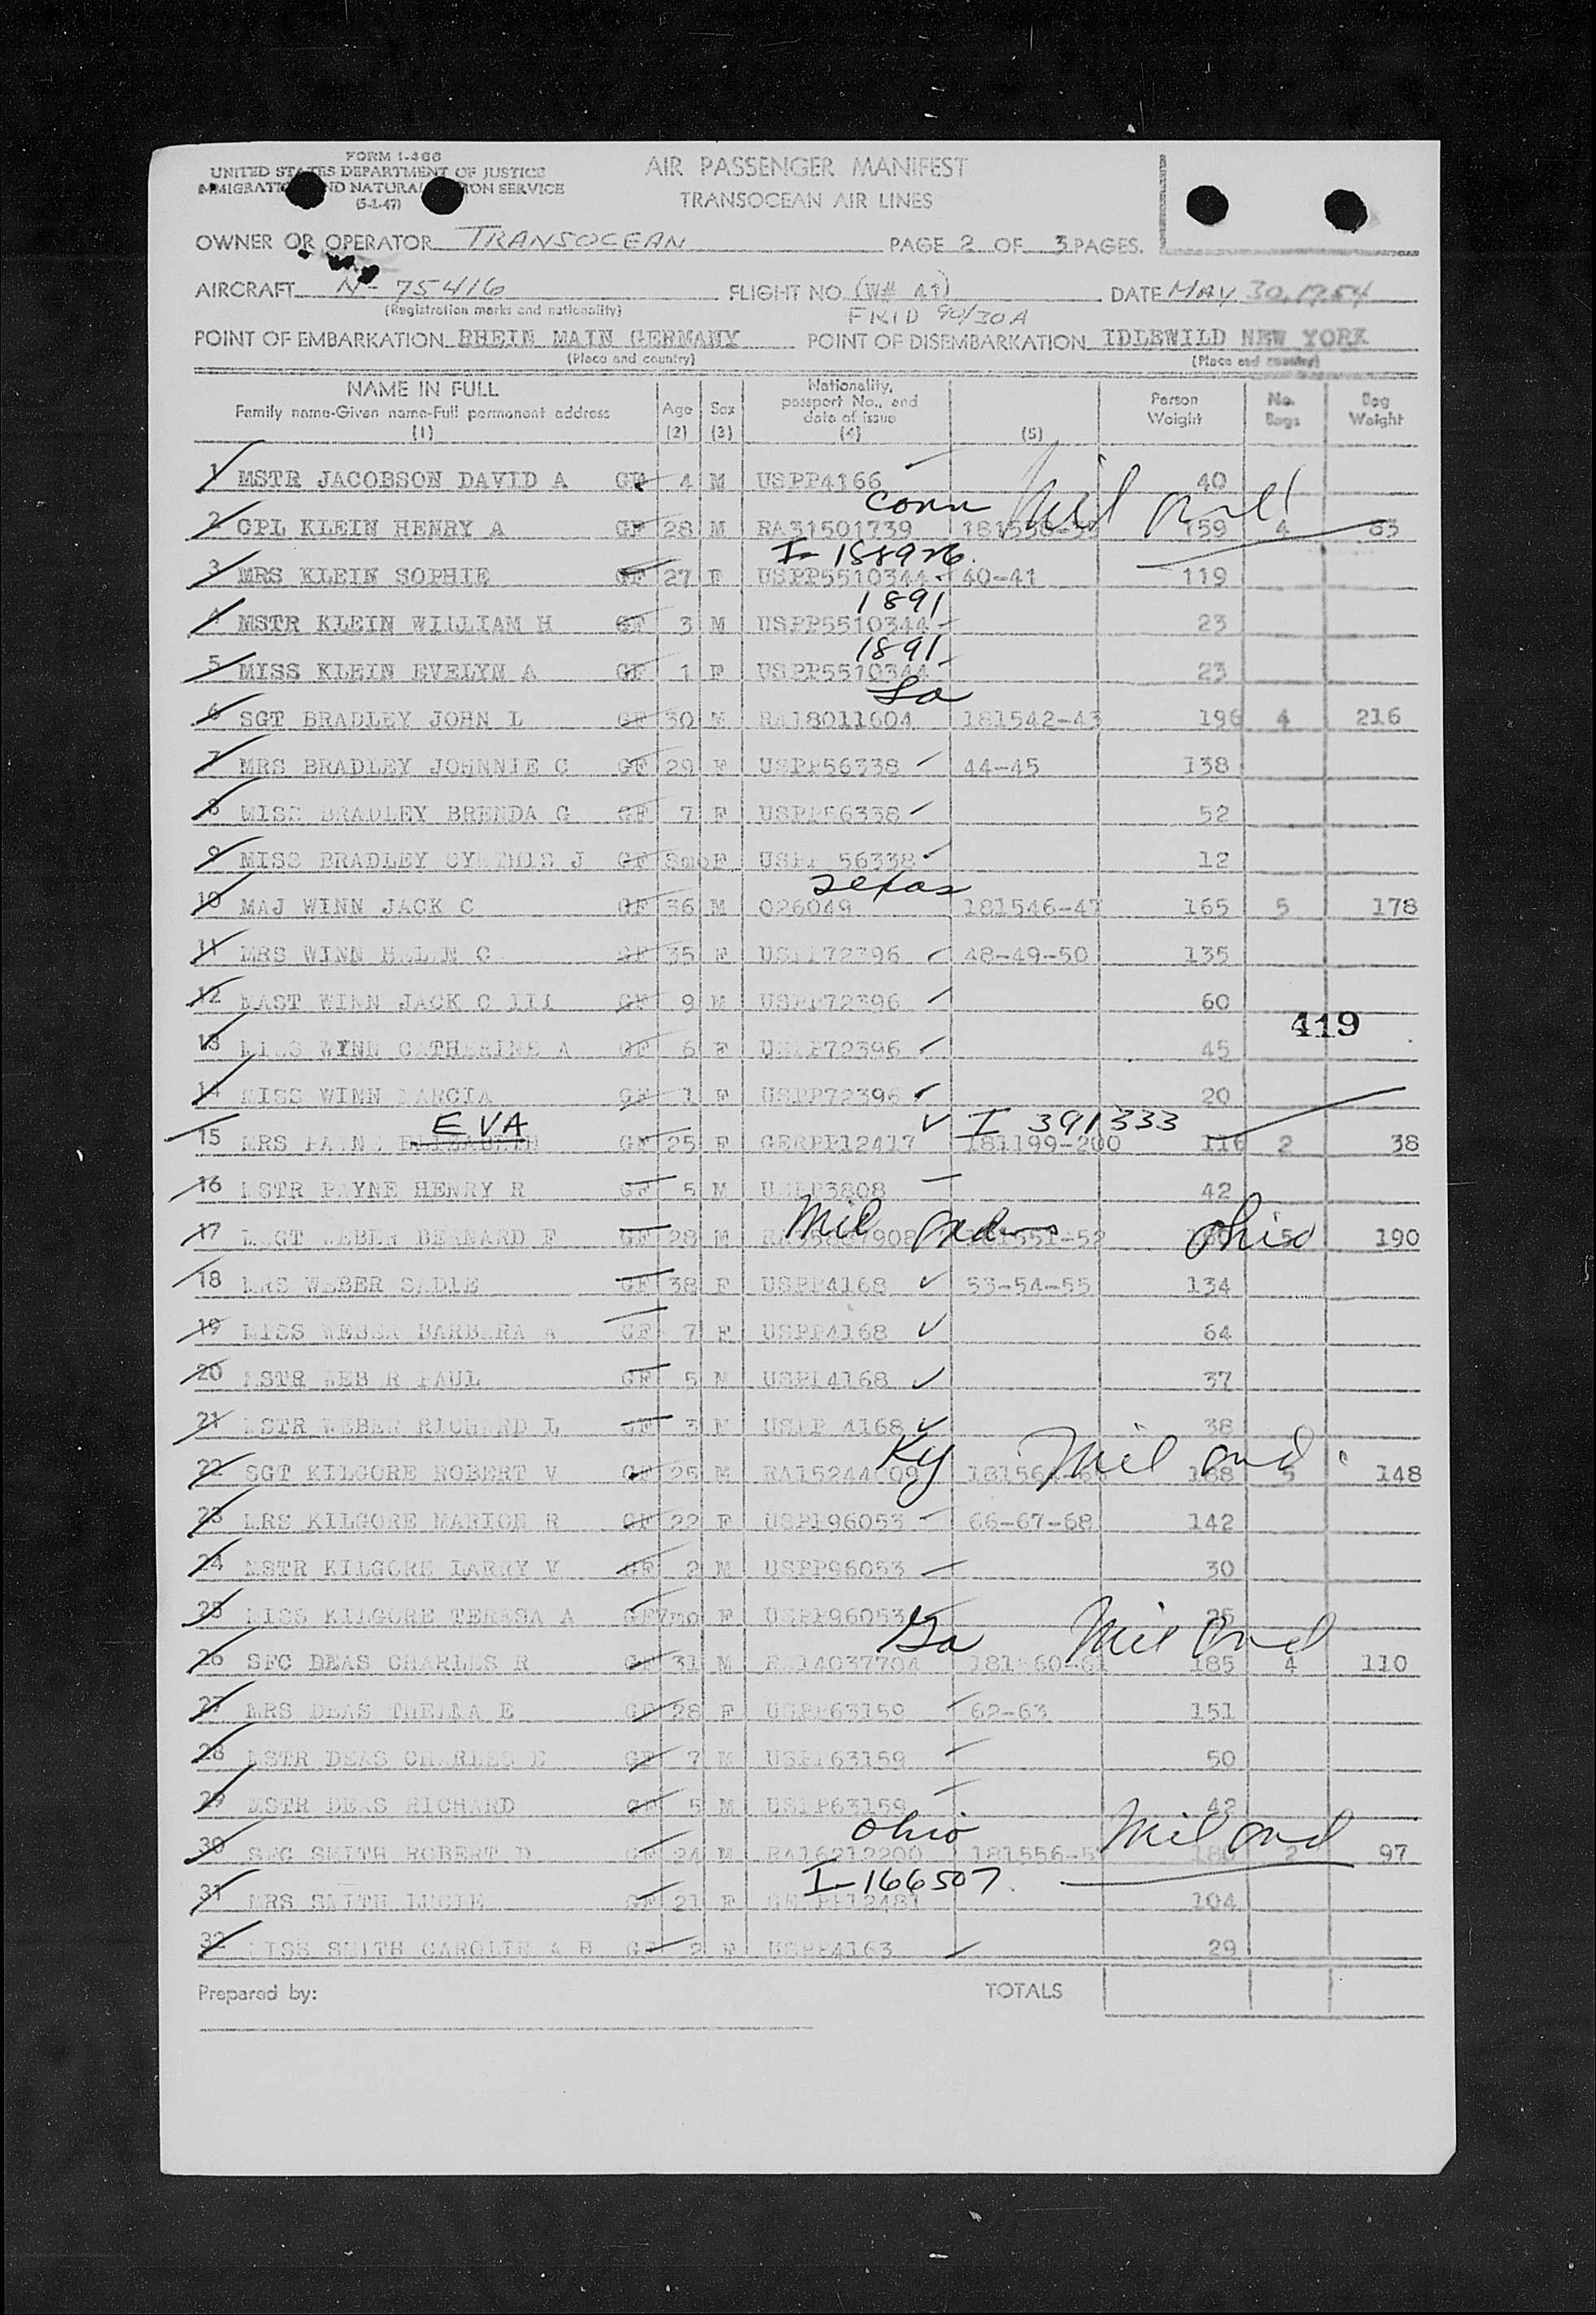 FORM I-466
UNITED STATES DEPARTMENT OF JUSTICE
IMMIGRATION AND NATURALIZATION SERVICE
(5-1-47)
AIR PASSENGER MANIFEST
TRANSOCEAN AIR LINES
OWNER OR OPERATOR TRANSOCEAN PAGE 2 OF 3 PAGES.
AIRCRAFT N-75416 FLIGHT NO (W# 41) DATE MAY 30, 1954
(Registration marks and nationality) FKID 90/30A
POINT OF EMBARKATION RHEIN MAIN GERMANY POINT OF DISEMBARKATION IDLEWILD NEW YORK
(Place and country) (Place and country)
NAME IN FULL Family name-Given name-Full permanent address (1) Age (2) Sex (3) Nationality, passport No., and date of issue (4) (5) Person Weight No. Bags Bag Weight
1 MSTR JACOBSON DAVID A GF 4 M USPP4166 40
Conn Mil
2 CPL KLEIN HENRY A GF 28 M RA31501739 159 4 83
I-158926.
3 MRS KLEIN SOPHIE GF 27 F USPP5510344 40-41 119
1891
4 MSTR KLEIN WILLIAM H GF 3 M USPP5510344 23
1891
5 MISS KLEIN EVELYN A GF 1 F USPP5510344 23
6 SGT BRADLEY JOHN L GF 30 M RA18011604 181542-43 196 4 216
7 MRS BRADLEY JOHNNIE C GF 29 F USPP56338 44-45 138
8 MISS BRADLEY BRENDA G GF 7 F USPP56338 52
9 MISS BRADLEY J GF 8mo F USPP 56338 12
Texas
10 MAJ WINN JACK C GF 36 M O26049 181546-47 165 5 178
11 MRS WINN HELEN C GF 35 F USPP72396 48-49-50 135
12 MAST WINN JACK C III GF 9 M USPP72396 60
419
13 MISS WYNN CATHERINE A GF 6 F USPP72396 45
14 MISS WINN MARCIA GF 1 F USPP72396 20
EVA I 391333
15 MRS PAYNE ELIZABETH GF 25 F GERPP12417 181199-200 116 2 38
16 MSTR PAYNE HENRY R GF 5 M USPP3808 42
Mil Ohio
17 WEBER BERNARD F GF 28 M 5 190
18 MRS WEBER SADIE GF 38 F USPP4168 53-54-55 134
19 MISS WEBER BARBARA A GF 7 F USPP4168 64
20 MSTR WEBER PAUL GF 5 M USPP4168 37
21 MSTR WEBER RICHARD L GF 3 M USPP 4168 38
Ky Mil ond
22 SGT KILGORE ROBERT V GF 25 M 188 5 148
23 MRS KILGORE MARION R GF 22 F USPP96053 66-67-68 142
24 MSTR KILGORE LARRY V GF 2 M USPP96053 30
25 MISS KILGORE TERESA A GF 7mo F USPP96053
Ga Mil ond
26 SFC DEAS CHARLES R GF 31 M RA14037704 181560-61 185 4 110
27 MRS DEAS THELMA E GF 28 F USPP63159 62-63 151
28 MSTR DEAS CHARLES E GF 7 M USPP63159 50
29 MSTR DEAS RICHARD GF 5 M USPP63159 42
Ohio Mil ond
30 SFC SMITH ROBERT D GF 24 M RA16212200 2 97
I-166507.
31 MRS SMITH LUCIE GF 21 F GERPP12481 104
32 MISS SMITH CAROLIN A H GF 2 F USPP4163 29
Prepared by: TOTALS